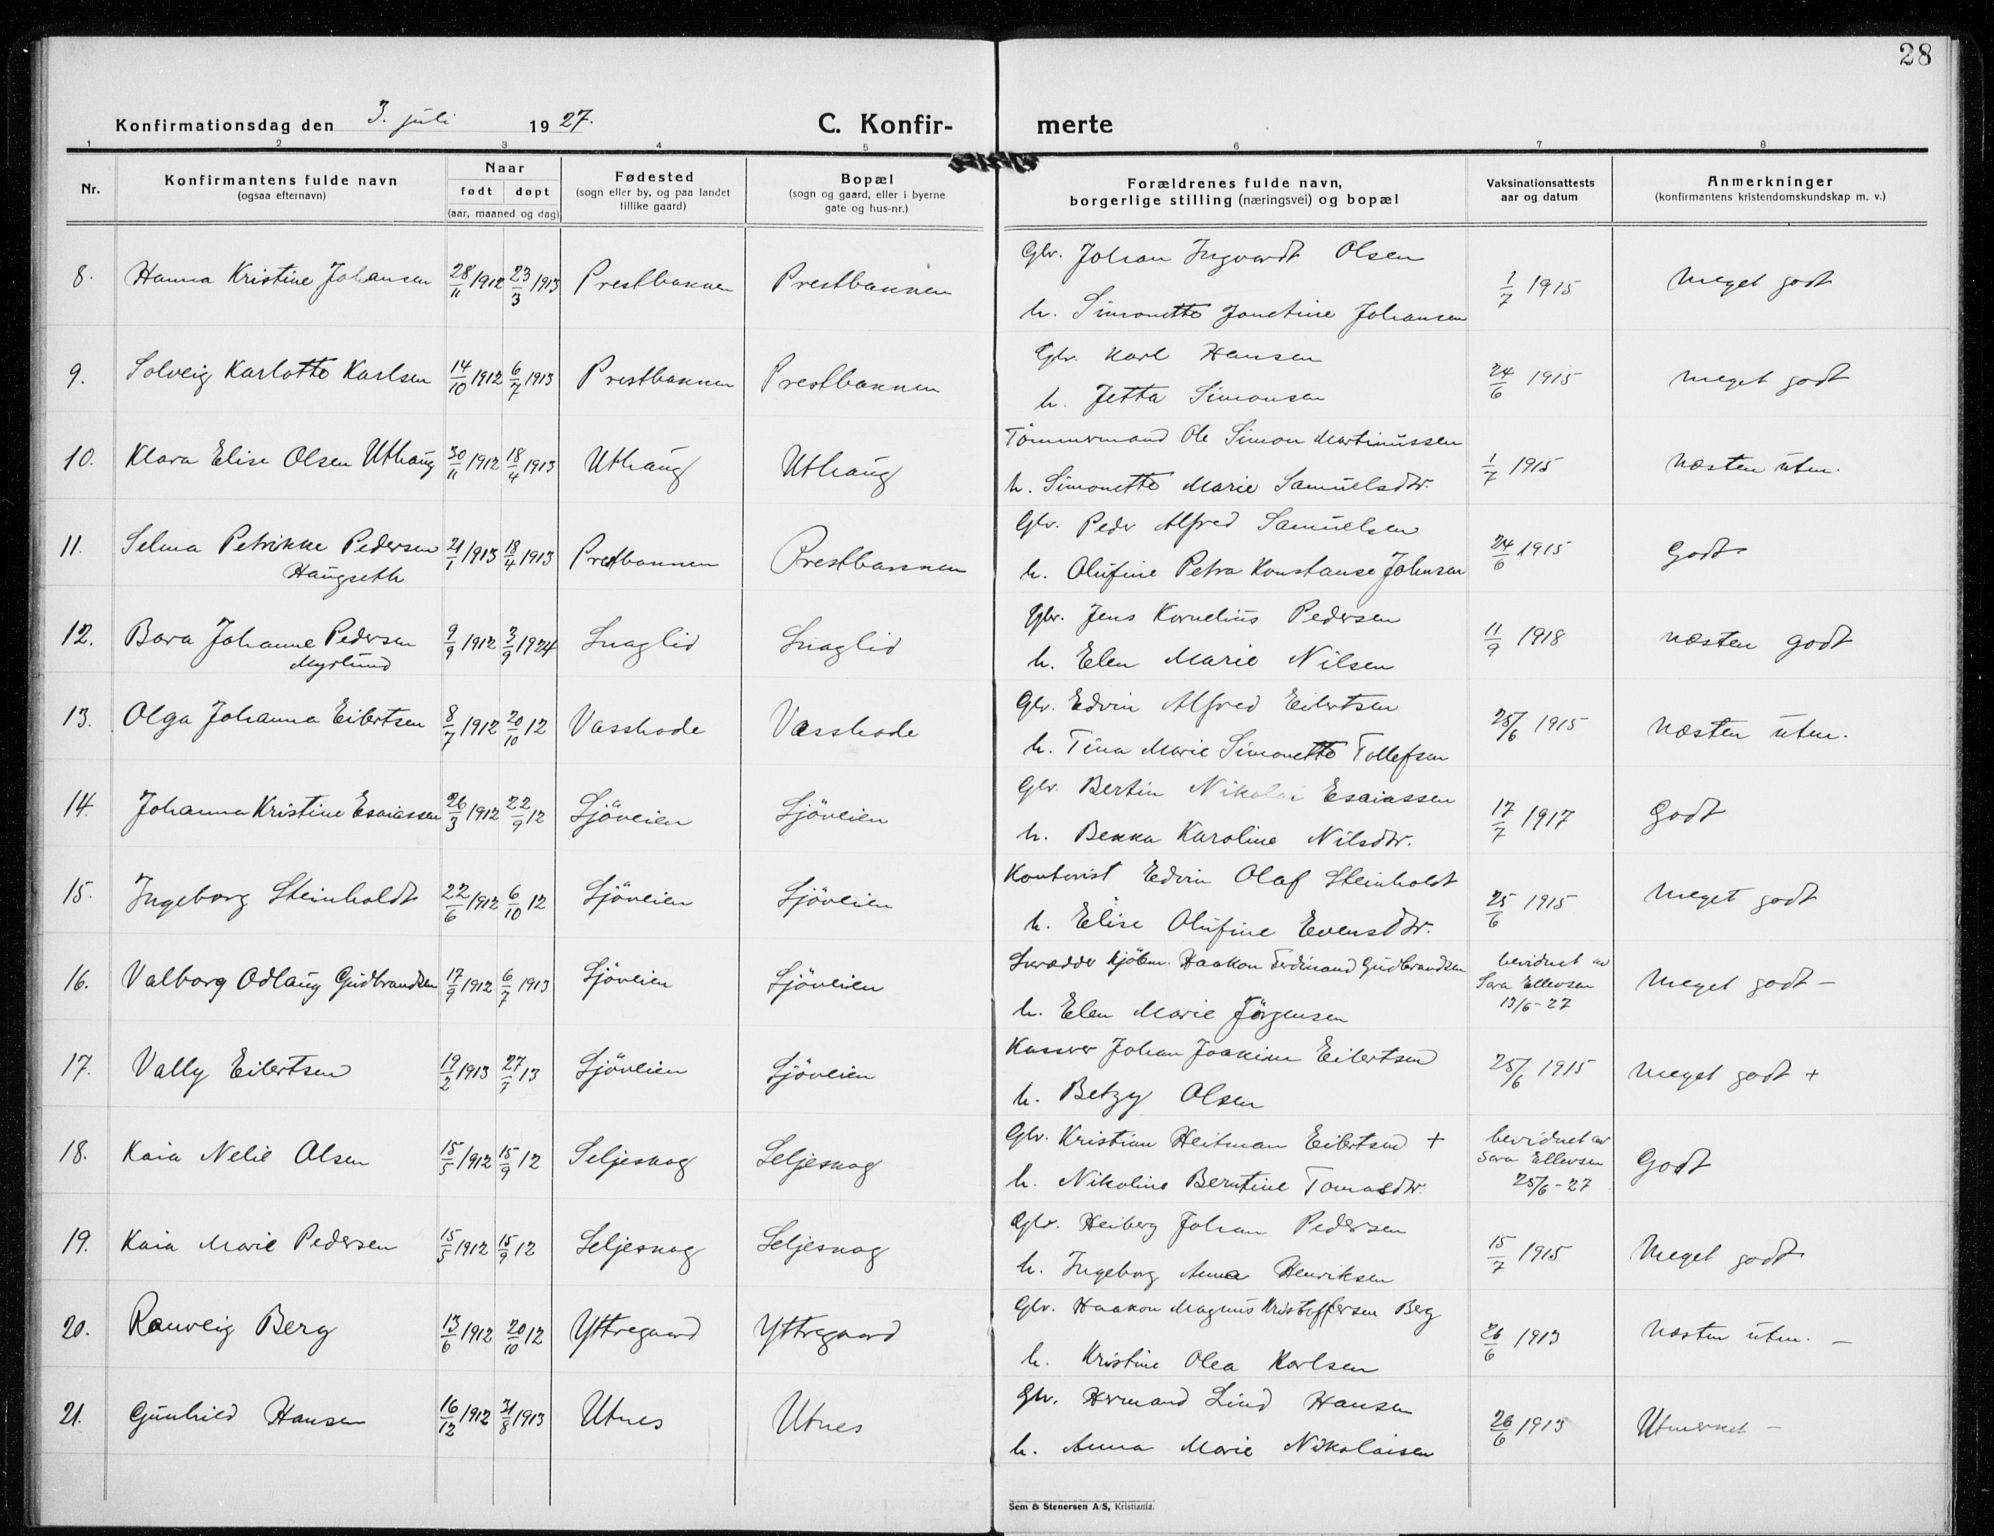 28
Konfirmationsdag den 3. juli 1927.
C. Konfir- merte
1 2 3 4 5 6 7 8
Nr.
Konfirmantens fulde navn
(ogsaa efternavn)
Naar
født døpt
(aar, maaned og dag)
Fødested
(sogn eller by, og paa landet
tillike gaard)
Bopæl
(sogn og gaard, eller i byerne
gate og hus-nr.)
Forældrenes fulde navn,
borgerlige stilling (næringsvei) og bopæl
Vaksinationsattests
aar og datum
Anmerkninger
(konfirmantens kristendomskundskap m. v.)
8. Hanna Kristine Johansen 28/11 1912 23/3 1913 Prestbakken Prestbakken Gbr. Johan Ingvardt Olsen 1/7 1915 Meget godt
h. Simonette Jonetine Johansen
9. Solveig Karlotte Karlsen 14/10 1912 6/7 1913 Prestbakken Prestbakken Gbr. Karl Hansen 24/6 1915 Meget godt
h. Jetta Simonsen
10. Klara Elise Olsen Uthaug 30/11 1912 18/4 1913 Uthaug Uthaug Tömmermand Ole Simon Martinussen 1/7 1915 Næsten utm.
h. Simonette Marie Samuelsdtr.
11. Selma Petrikke Pedersen 21/1 1913 18/4 1913 Prestbakken Prestbakken Gbr. Peder Alfred Samuelsen 24/6 1915 Godt
Haugseth h. Olufine Petra Konstanse Johnsen
12. Bara Johanne Pedersen 9/9 1912 3/9 1924 Snaglid Snaglid Gbr. Jens Kornelius Pedersen 11/9 1918 Næsten godt
Myrlund h. Elen Marie Nilsen
13. Olga Johanna Eilertsen 8/7 1912 20/10 12 Vasshode Vasshode Gbr. Edvin Alfred Eilertsen 25/6 1915 Næsten utm.
h. Tina Marie Simonette Tollefsen
14. Johanna Kristine Esaiassen 26/3 1912 22/9 12 Sjöveien Sjöveien Gbr. Bertin Nikolai Esaiassen 17/7 1917 Godt
h. Bekka Karoline Nilsdtr.
15. Ingeborg Steinholdt 22/6 1912 6/10 12 Sjöveien Sjöveien Kontorist Edvin Olaf Steinholdt 25/6 1915 Meget godt
h. Elise Olufine Evensdtr.
16. Valborg Odlaug Gudbrandsen 17/9 1912 6/7 1913 Sjöveien Sjöveien Skrædder kjöbm. Haakon Ferdinand Gudbrandsen bevidnet av Sara Ellevsen 13/6-27 Meget godt -
h. Elen Marie Jörgensen
17. Vally Eilertsen 19/2 1913 27/7 13 Sjöveien Sjöveien Kasser Johan Joakim Eilertsen 25/6 1915 Meget godt +
h. Betzy Olsen
18. Kaia Nelie Olsen 15/5 1912 15/9 12 Seljeskog Seljeskog Gbr. Kristian Heitman Eilertsen + bevidnet av Sara Ellevsen 25/6-27 Godt
h. Nikoline Berntine Tomasdtr.
19. Kaia Marie Pedersen 15/5 1912 15/9 12 Seljeskog Seljeskog Gbr. Heiberg Johan Pedersen 15/7 1915 Meget godt
h. Ingeborg Anna Henriksen
20. Ranveig Berg 13/6 1912 20/10 12 Yttregaard Yttregaard Gbr. Haakon Magnus Kristoffersen Berg 26/6 1913 Næsten utm. -
h. Kristine Olea Karlsen
21. Gunhild Hansen 16/12 1912 31/8 1913 Utnes Utnes Gbr. Hermand Lind Hansen 26/6 1913 Utmerket -
h. Anna Marie Nikolaisen
Sem & Stenersen A/S, Kristiania.